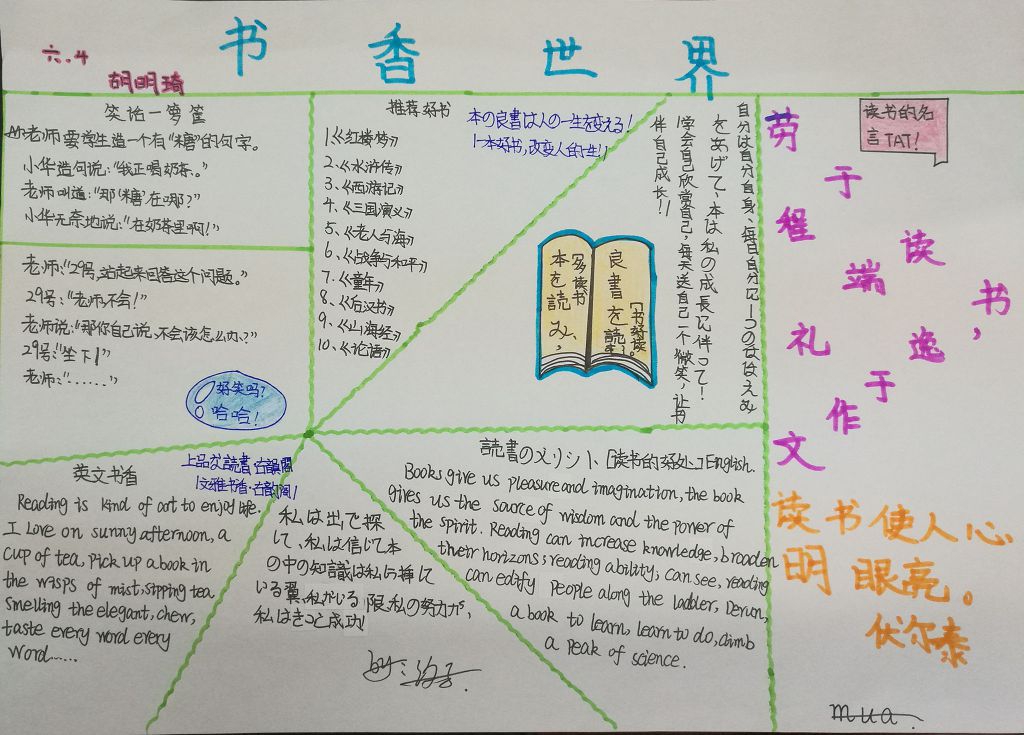 书香世界
六.4
胡明琦
笑话一箩筐
老师要学生造一个有“糖”的句字。
小华造句说：“我正喝奶茶。”
老师叫道：“那‘糖’在哪？”
小华无奈地说：“在奶茶里啊！”
老师：“29号，站起来回答这个问题。”
29号：“老师，不会！”
老师说：“那你自己说，不会该怎么办？”
29号：“坐下！”
老师：“......”
好笑吗？
哈哈！
推荐好书
1、《红楼梦》
2、《水浒传》
3、《西游记》
4、《三国演义》
5、《老人与海》
6、《战争与和平》
7、《童年》
8、《后汉书》
9、《山海经》
10、《论语》
本の良書は人の一生を変える！
[一本好书，改变人的一生！]
自分は自分自身、毎日自分に一つのほほえみ
をあげて、本は私の成長に伴って！
[学会自己欣赏自己，每天送自己一个微笑，让书
伴自己成长！]
良書を読
[书好读
多读书
本を読み，
读书的名
言TAT！
劳于读书，
逸于作文
程端礼
读书使人心
明眼亮。
伏尔泰
mua.
英文书香
Reading is kind of art to enjoy life.
I Love on sunny afternoon, a
cup of tea, pick up a book in
the wisps of mist, sipping tea
smelling the elegant, chew,
taste every word every
word......
上品な読書·古韻閣
[文雅书香·古韵阁]
私は出で探
して、私は信じて本
の中の知識は私に挿して
いる翼、私がいる限、私の努力が、
私はきっと成功！
by：
読書のメリット [读书的好处] English.
Books give us pleasure and imagination, the book
gives us the source of wisdom and the power of
the spirit. Reading can increase knowledge, broaden
their horizons; reading ability; can see, reading
can edify People along the ladder, Derun,
a book to learn, learn to do, climb
a peak of science.